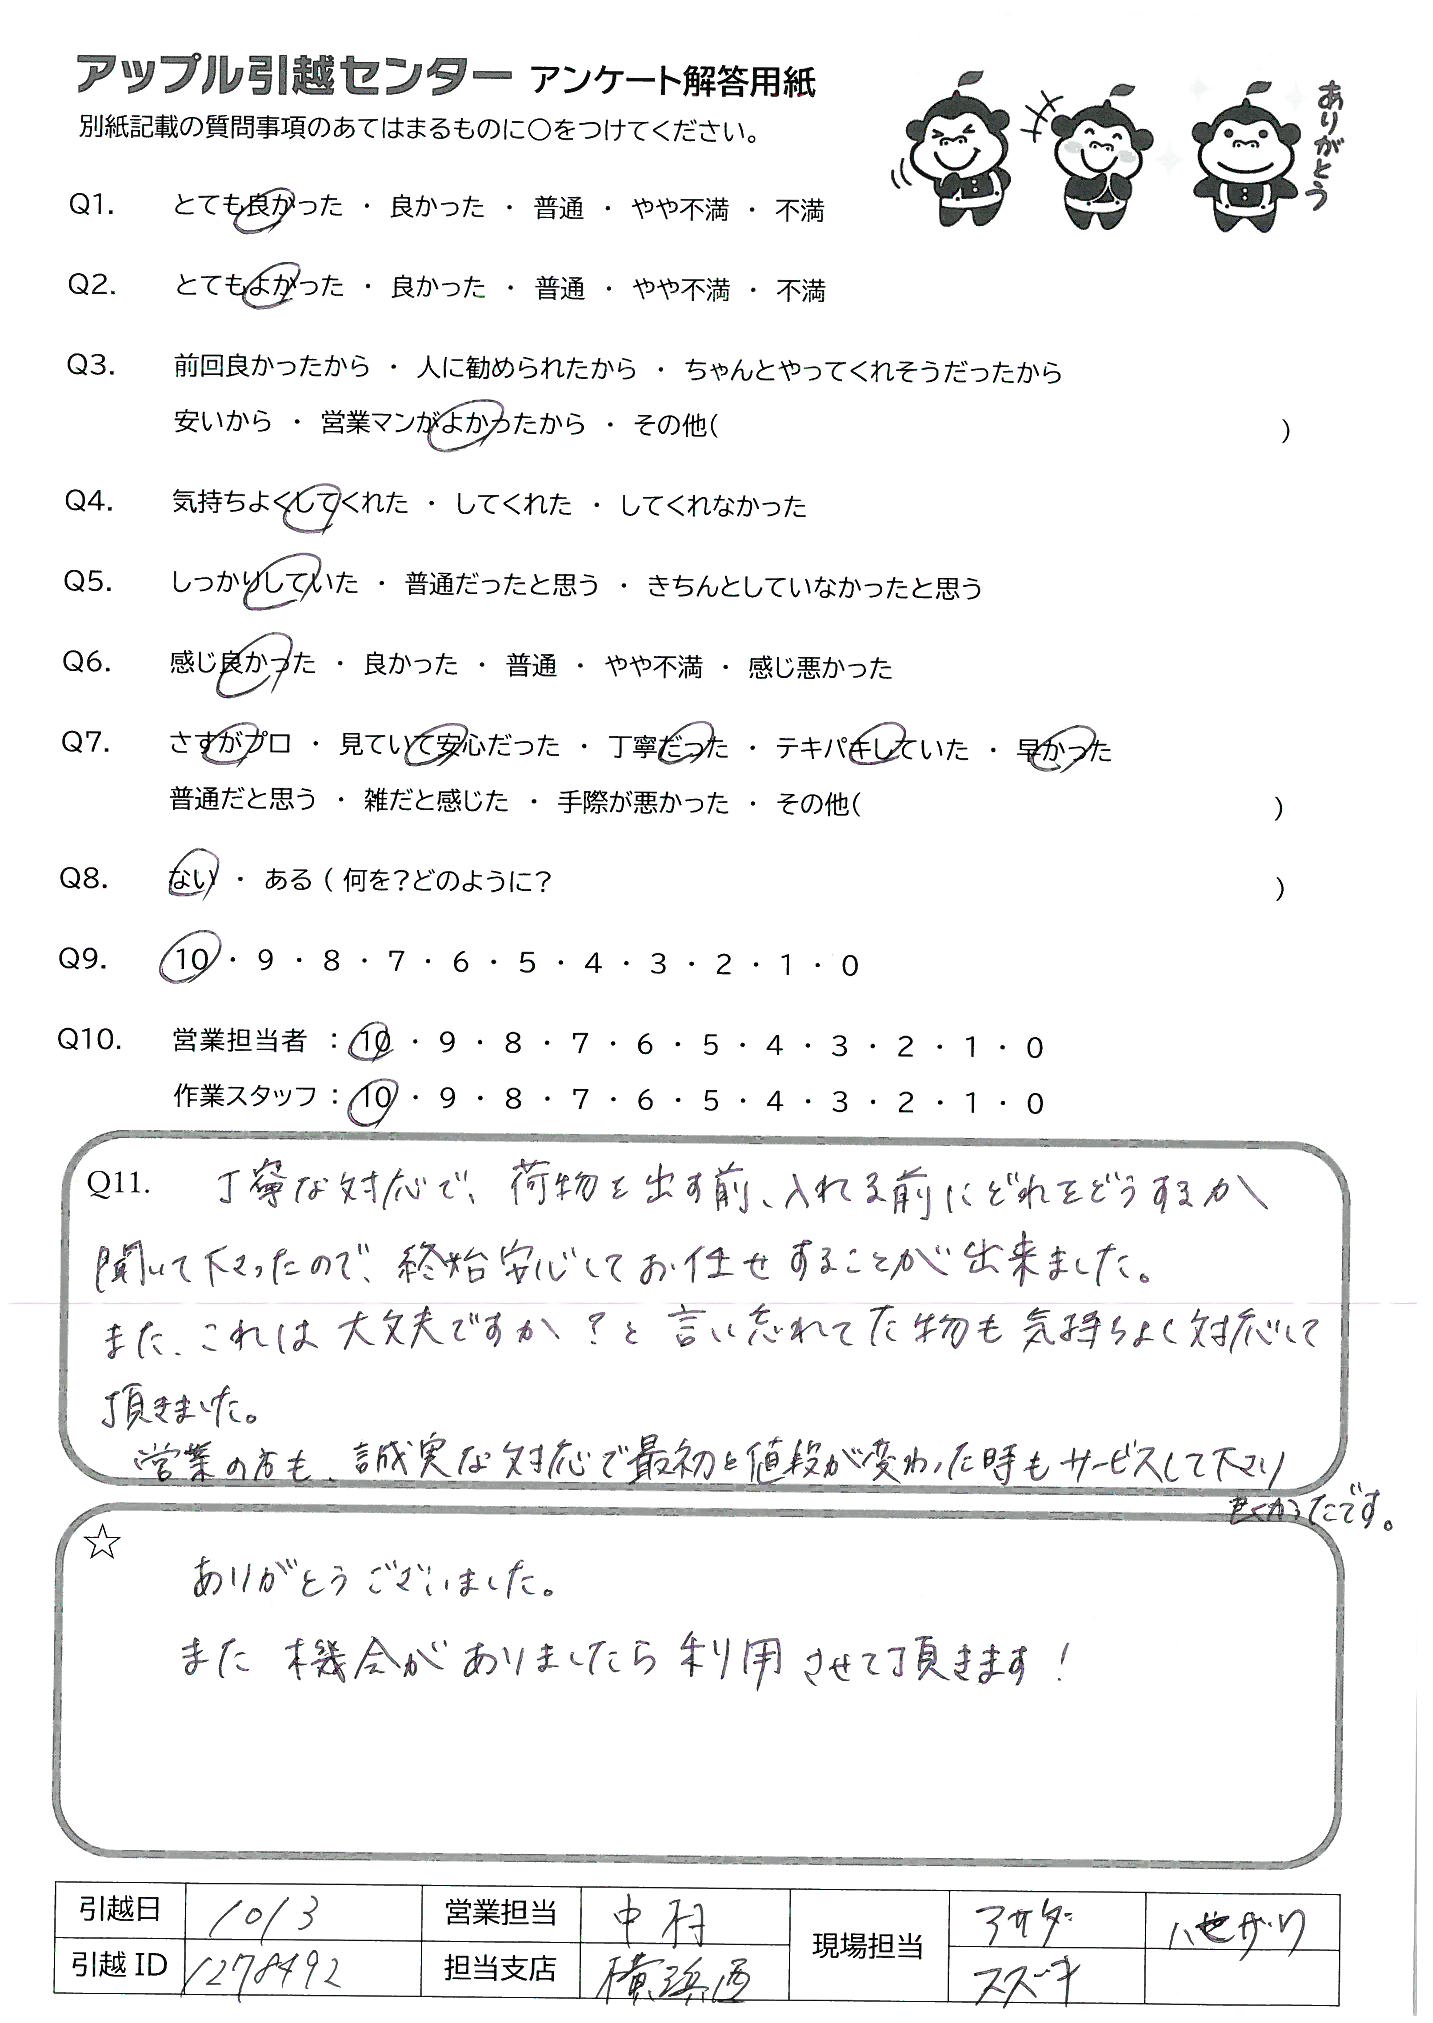 アップル引越センター アンケート解答用紙
別紙記載の質問事項のあてはまるものに○をつけてください。
ありがとう
Q1. とても良かった ・ 良かった ・ 普通 ・ やや不満 ・ 不満
Q2. とてもよかった ・ 良かった ・ 普通 ・ やや不満 ・ 不満
Q3. 前回良かったから ・ 人に勧められたから ・ ちゃんとやってくれそうだったから
安いから ・ 営業マンがよかったから ・ その他( )
Q4. 気持ちよくしてくれた ・ してくれた ・ してくれなかった
Q5. しっかりしていた ・ 普通だったと思う ・ きちんとしていなかったと思う
Q6. 感じ良かった ・ 良かった ・ 普通 ・ やや不満 ・ 感じ悪かった
Q7. さすがプロ ・ 見ていて安心だった ・ 丁寧だった ・ テキパキしていた ・ 早かった
普通だと思う ・ 雑だと感じた ・ 手際が悪かった ・ その他( )
Q8. ない ・ ある ( 何を?どのように? )
Q9. 10 ・ 9 ・ 8 ・ 7 ・ 6 ・ 5 ・ 4 ・ 3 ・ 2 ・ 1 ・ 0
Q10. 営業担当者 : 10 ・ 9 ・ 8 ・ 7 ・ 6 ・ 5 ・ 4 ・ 3 ・ 2 ・ 1 ・ 0
作業スタッフ : 10 ・ 9 ・ 8 ・ 7 ・ 6 ・ 5 ・ 4 ・ 3 ・ 2 ・ 1 ・ 0
Q11. 丁寧な対応で、荷物を出す前、入れる前にどれをどうするか
聞いて下さったので、終始安心してお任せすることが出来ました。
また、これは大丈夫ですか?と言い忘れてた物も気持ちよく対応して
頂きました。
営業の方も、誠実な対応で最初と値段が変わった時もサービスして下さり
良かったです。
☆
ありがとうございました。
また機会がありましたら利用させて頂きます!
引越日 10/3 営業担当 中村 現場担当 アサダ ハセガワ
引越ID 1278492 担当支店 横浜西 スズキ